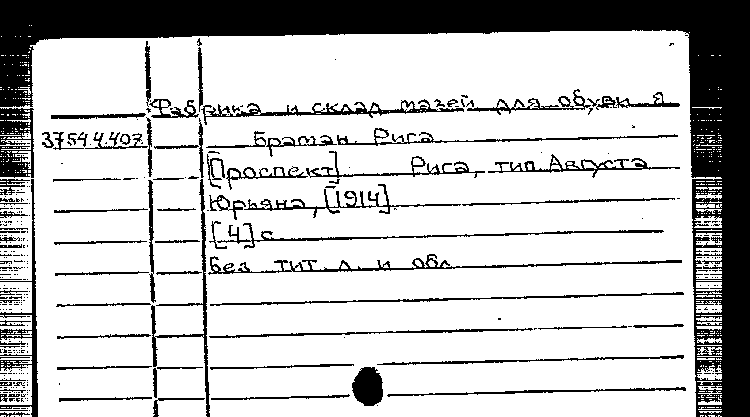 Фабрика и склад мазей для обуви Я.
37544.407 Братан. Рига.
[Проспект]. Рига, тип. Августа
Юрьяна, [1914].
[4] с.
Без тит. л. и обл.